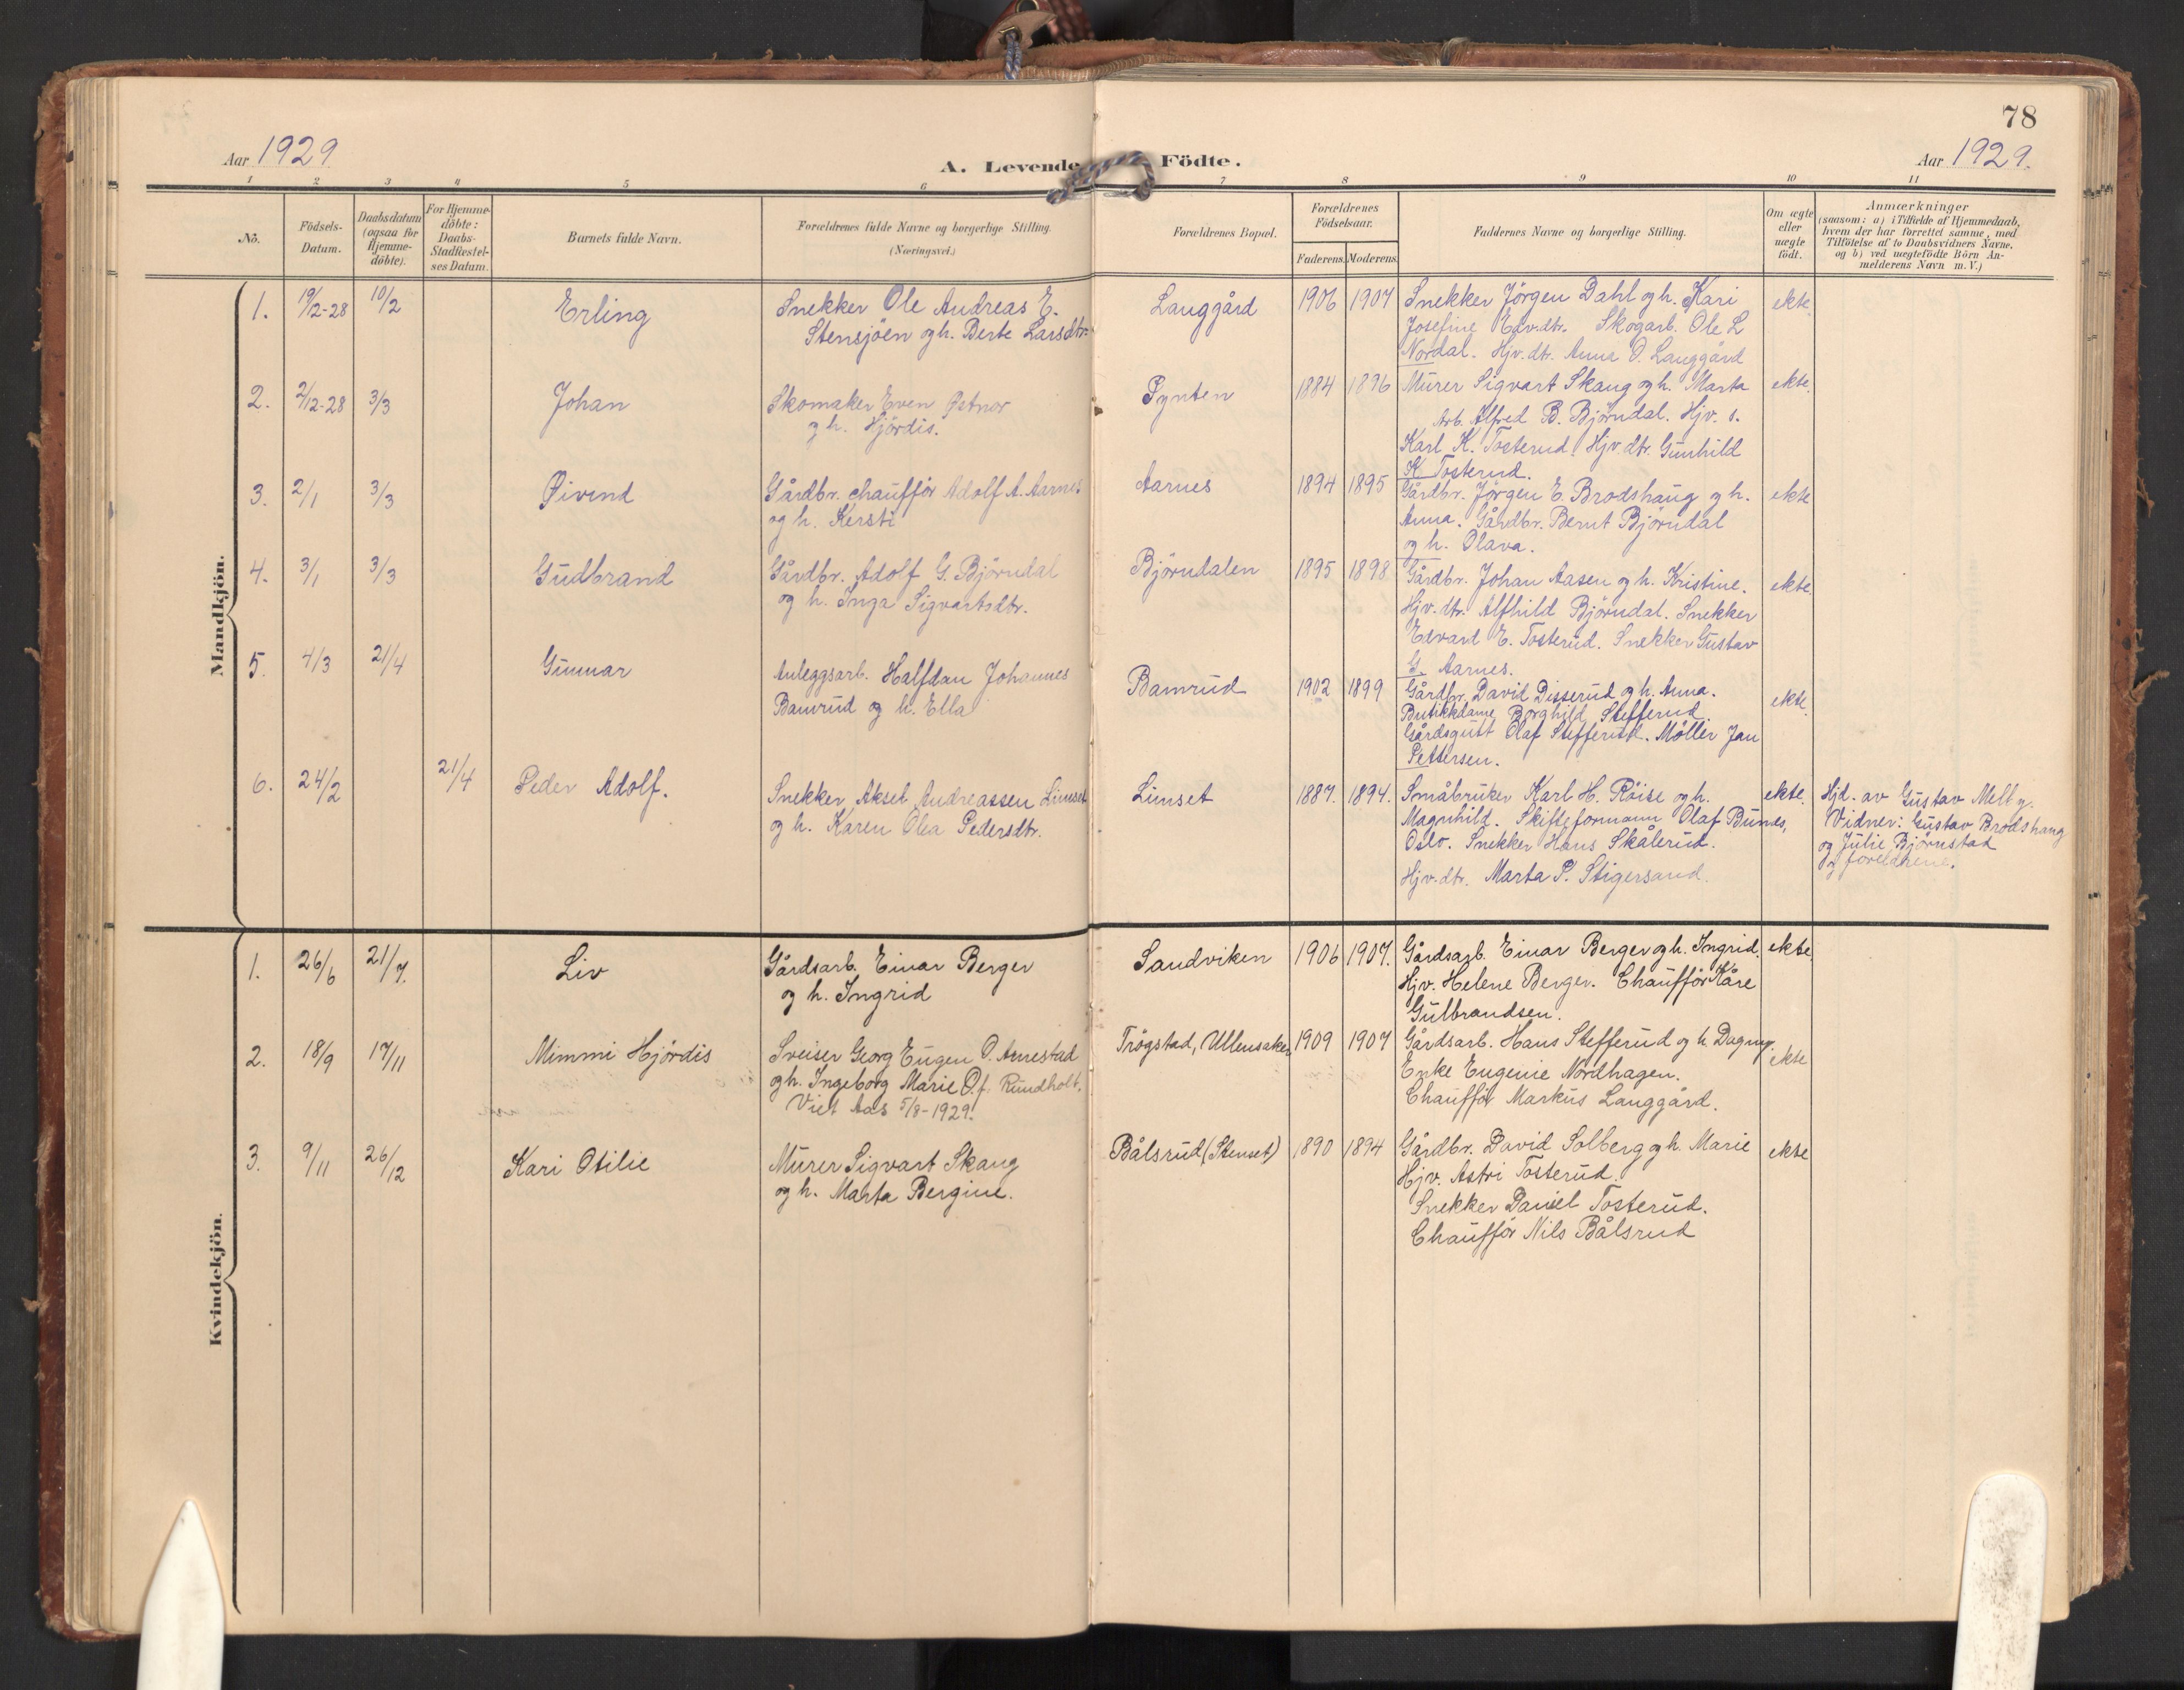 78
Aar 1929. A. Levende Födte. Aar 1929.
1 2 3 4 5 6 7 8 9 10 11
No.
Födsels-
Datum.
Daabsdatum
(ogsaa for
Hjemme-
döbte).
For Hjemme-
döbte:
Daabs-
Stadfæstel-
ses Datum.
Barnets fulde Navn.
Forældrenes fulde Navne og borgerlige Stilling.
(Næringsvei.)
Forældrenes Bopæl.
Forældrenes
Födselsaar.
Faderens. Moderens.
Faddernes Navne og borgerlige Stilling.
Om ægte
eller
uægte
födt.
Anmærkninger
(saasom: a) i Tilfælde af Hjemmedaab,
hvem der har forrettet samme, med
Tilföielse af to Daabsvidners Navne,
og b) ved uægtefödte Börn An-
melderens Navn m. V.)
Mandkjön.
1. 19/2-28 10/2 Erling
Snekker Ole Andreas E.
Stensjöen og h. Berte Larsdtr.
Langgård 1906 1907
Snekker Jörgen Dahl og h. Kari
Josefine Edv.dtr. Skogarb. Ole L
Nordal. Hjv.dtr. Anna O. Langgård
ekte.
2. 2/12-28 3/3 Johan
Skomaker Even Østnor
og h. Hjördis.
Pynten 1884 1896
Murer Sigvart Skaug og h. Marta
Arb. Alfred B. Björndal. Hjv. s.
Karl K. Tosterud. Hjv.dtr. Gunhild
K Tosterud.
ekte.
3. 2/1 3/3 Øivind
Gårdbr. chaufför Adolf A. Aarnes
og h. Kersti
Aarnes 1894 1895
Gårdbr. Jörgen E. Brodshaug og h.
Anna. Gårdbr. Bernt Björndal
og h. Olava.
ekte
4. 3/1 3/3 Gudbrand
Gårdbr. Adolf G. Björndal
og h. Inga Sigvartsdtr.
Björndalen 1895 1898
Gårdbr. Johan Aasen og h. Kristine.
Hjv.dtr. Alfhild Björndal. Snekker
Edvard E. Tosterud. Snekker Gustav
G. Aarnes.
ekte.
5. 4/3 21/4 Gunnar
Anleggsarb. Halfdan Johannes
Bamrud og h. Ella
Bamrud 1902 1899
Gårdbr. David Disserud og h. Anna.
Butikkdame Borghild Stefferud.
Gårdsgutt Olaf Stefferud. Möller Jan
Pettersen.
ekte.
6. 24/2 21/4 Peder Adolf.
Snekker Aksel Andreassen Limset
og h. Karen Olea Pedersdtr.
Limset 1887. 1894.
Småbruker Karl H. Röise og h.
Magnhild. Skifteformann Olaf Bunes,
Oslo. Snekker Hans Skålerud.
Hjv.dtr. Marta P. Stigersand.
ekte.
Hjd. av Gustav Melby.
Vidner: Gustav Brodshaug
og Julie Björnstad
og foreldrene.
Kvindekjön.
1. 26/6 21/7. Liv
Gårdsarb. Einar Berger
og h. Ingrid
Sandviken 1906 1907.
Gårdsarb. Einar Berger og h. Ingrid.
Hjv. Helene Berger. Chaufför Kåre
Gulbrandsen.
ekte.
2. 18/9 17/11 Mimmi Hjördis
Sveiser Georg Eugen O. Arnestad
og h. Ingeborg Marie O. f. Rundholt.
Viet Aas 5/8-1929.
Trögstad, Ullensaker 1909 1907
Gårdsarb. Hans Stefferud og h Dagny.
Enke Eugenie Nordhagen.
Chaufför Markus Langgård.
ekte
3. 9/11 26/12 Kari Otilie
Murer Sigvart Skaug
og h. Marta Bergine.
Bålsrud (Stenset) 1890 1894
Gårdbr. David Solberg og h. Marie
Hjv. Astri Tosterud.
Snekker Daniel Tosterud.
Chaufför Nils Bålsrud
ekte